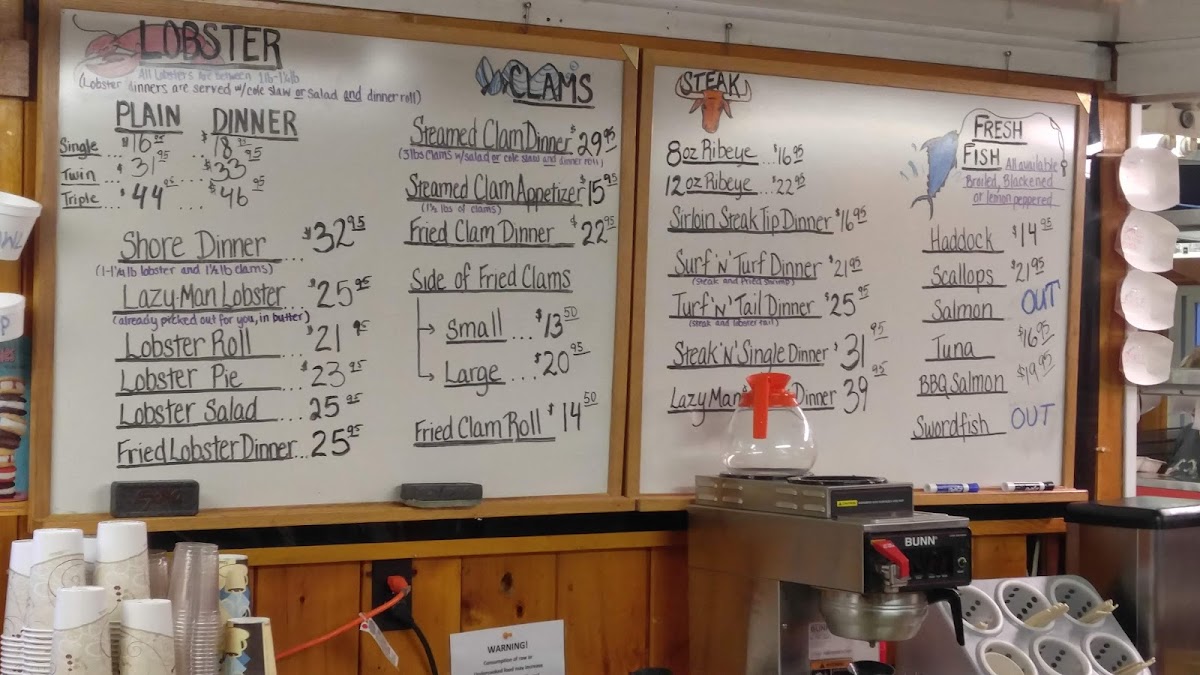 LOBSTER
All Lobsters Are between 1lb-1¼lb
(Lobster dinners are served w/cole slaw or salad and dinner roll)
PLAIN DINNER
Single ... $16.95 ... $18.95
Twin ... $31.95 ... $33.95
Triple ... $44.95 ... $46.95
Shore Dinner ... $32.95
(1-1¼lb lobster and 1½lb clams)
Lazy-Man Lobster ... $25.95
(already picked out for you, in butter)
Lobster Roll ... $21.95
Lobster Pie ... $23.95
Lobster Salad ... 25.95
Fried Lobster Dinner ... 25.95
CLAMS
Steamed Clam Dinner $29.95
(3lbs clams w/salad or cole slaw and dinner roll)
Steamed Clam Appetizer $15.95
(1½ lbs of clams)
Fried Clam Dinner $22.95
Side of Fried Clams
Small ... $13.50
Large ... $20.95
Fried Clam Roll $14.50
STEAK
8oz Ribeye ... $16.95
12oz Ribeye ... $22.95
Sirloin Steak Tip Dinner $16.95
Surf 'N' Turf Dinner $21.95
(steak and fried shrimp)
Turf 'N' Tail Dinner $25.95
(steak and lobster tail)
Steak 'N' Single Dinner $31.95
Lazy Man Dinner 39.95
FRESH
FISH
All available
Broiled, Blackened
or lemon peppered
Haddock $14.95
Scallops $21.95
Salmon OUT
Tuna $16.95
BBQ Salmon $19.95
Swordfish OUT
BUNN
WARNING!
Consumption of raw or
undercooked food may increase